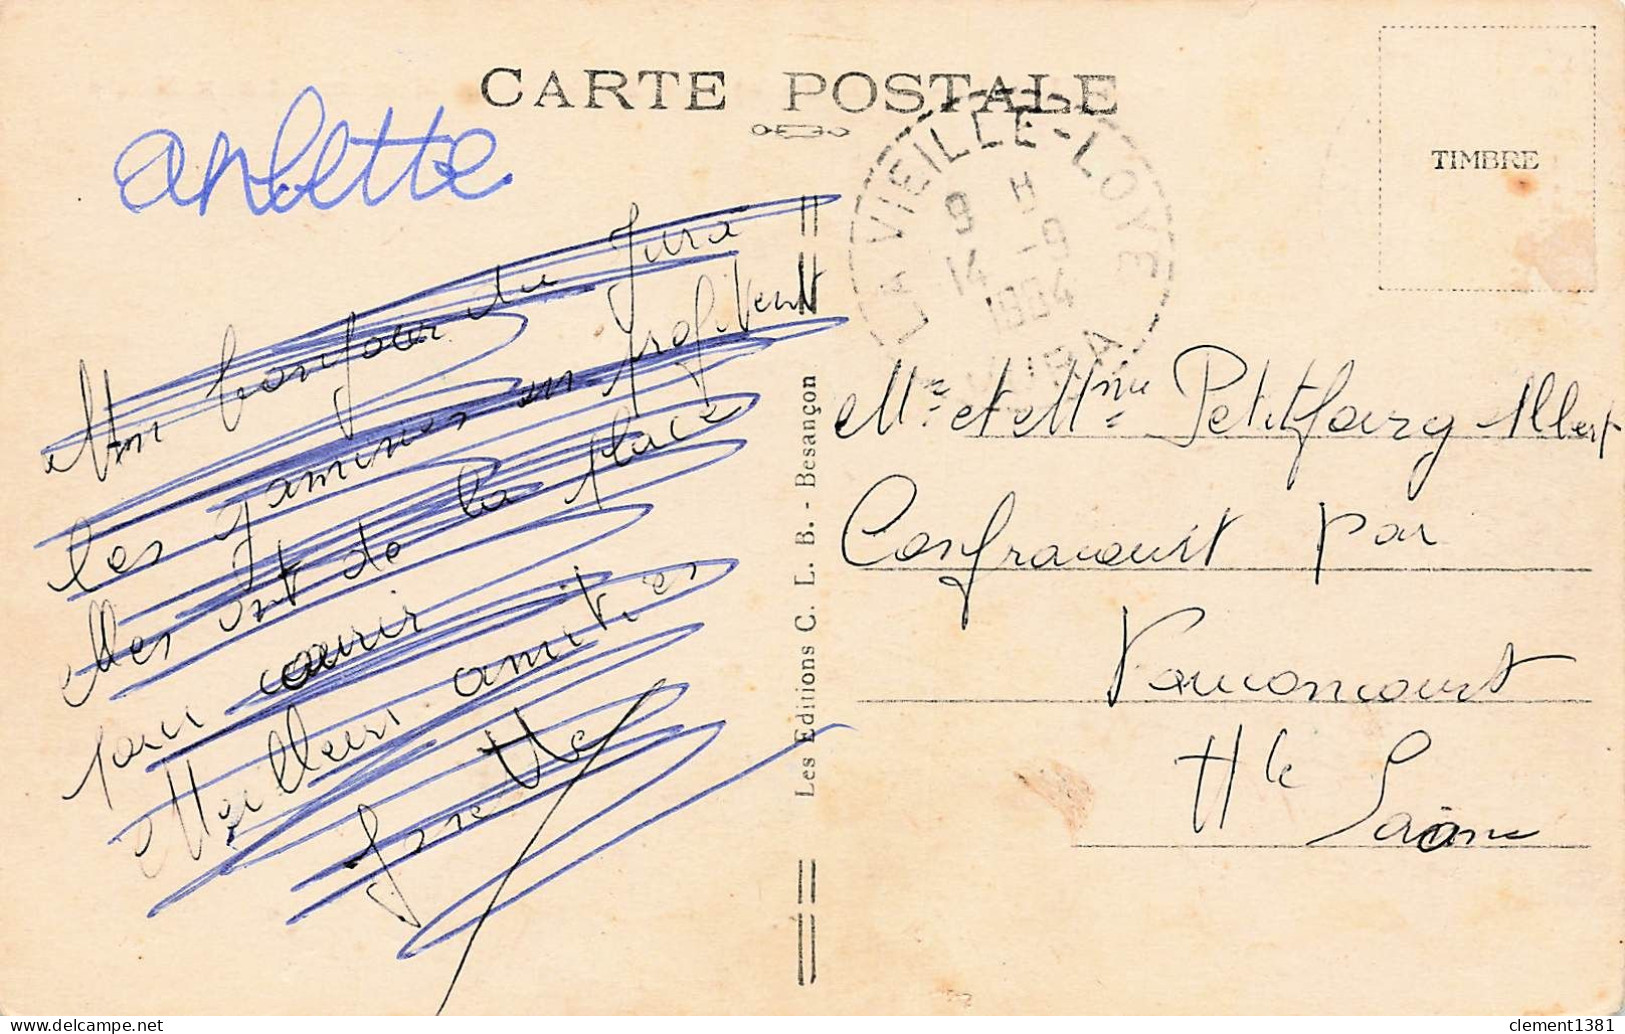 CARTE POSTALE
arlette
TIMBRE
LA VIEILLE-LOYE
9 H
14 -9
1964
JURA
Un bonjour du Jura
les gamines en profitent
elles ont de la place
pour courir
Meilleures amitiés
Ginette
Les Editions C. L. B. - Besançon
Mr et Mme Petitfourg Albert
Confracourt par
Vauconcourt
Hte Saône
clement1381